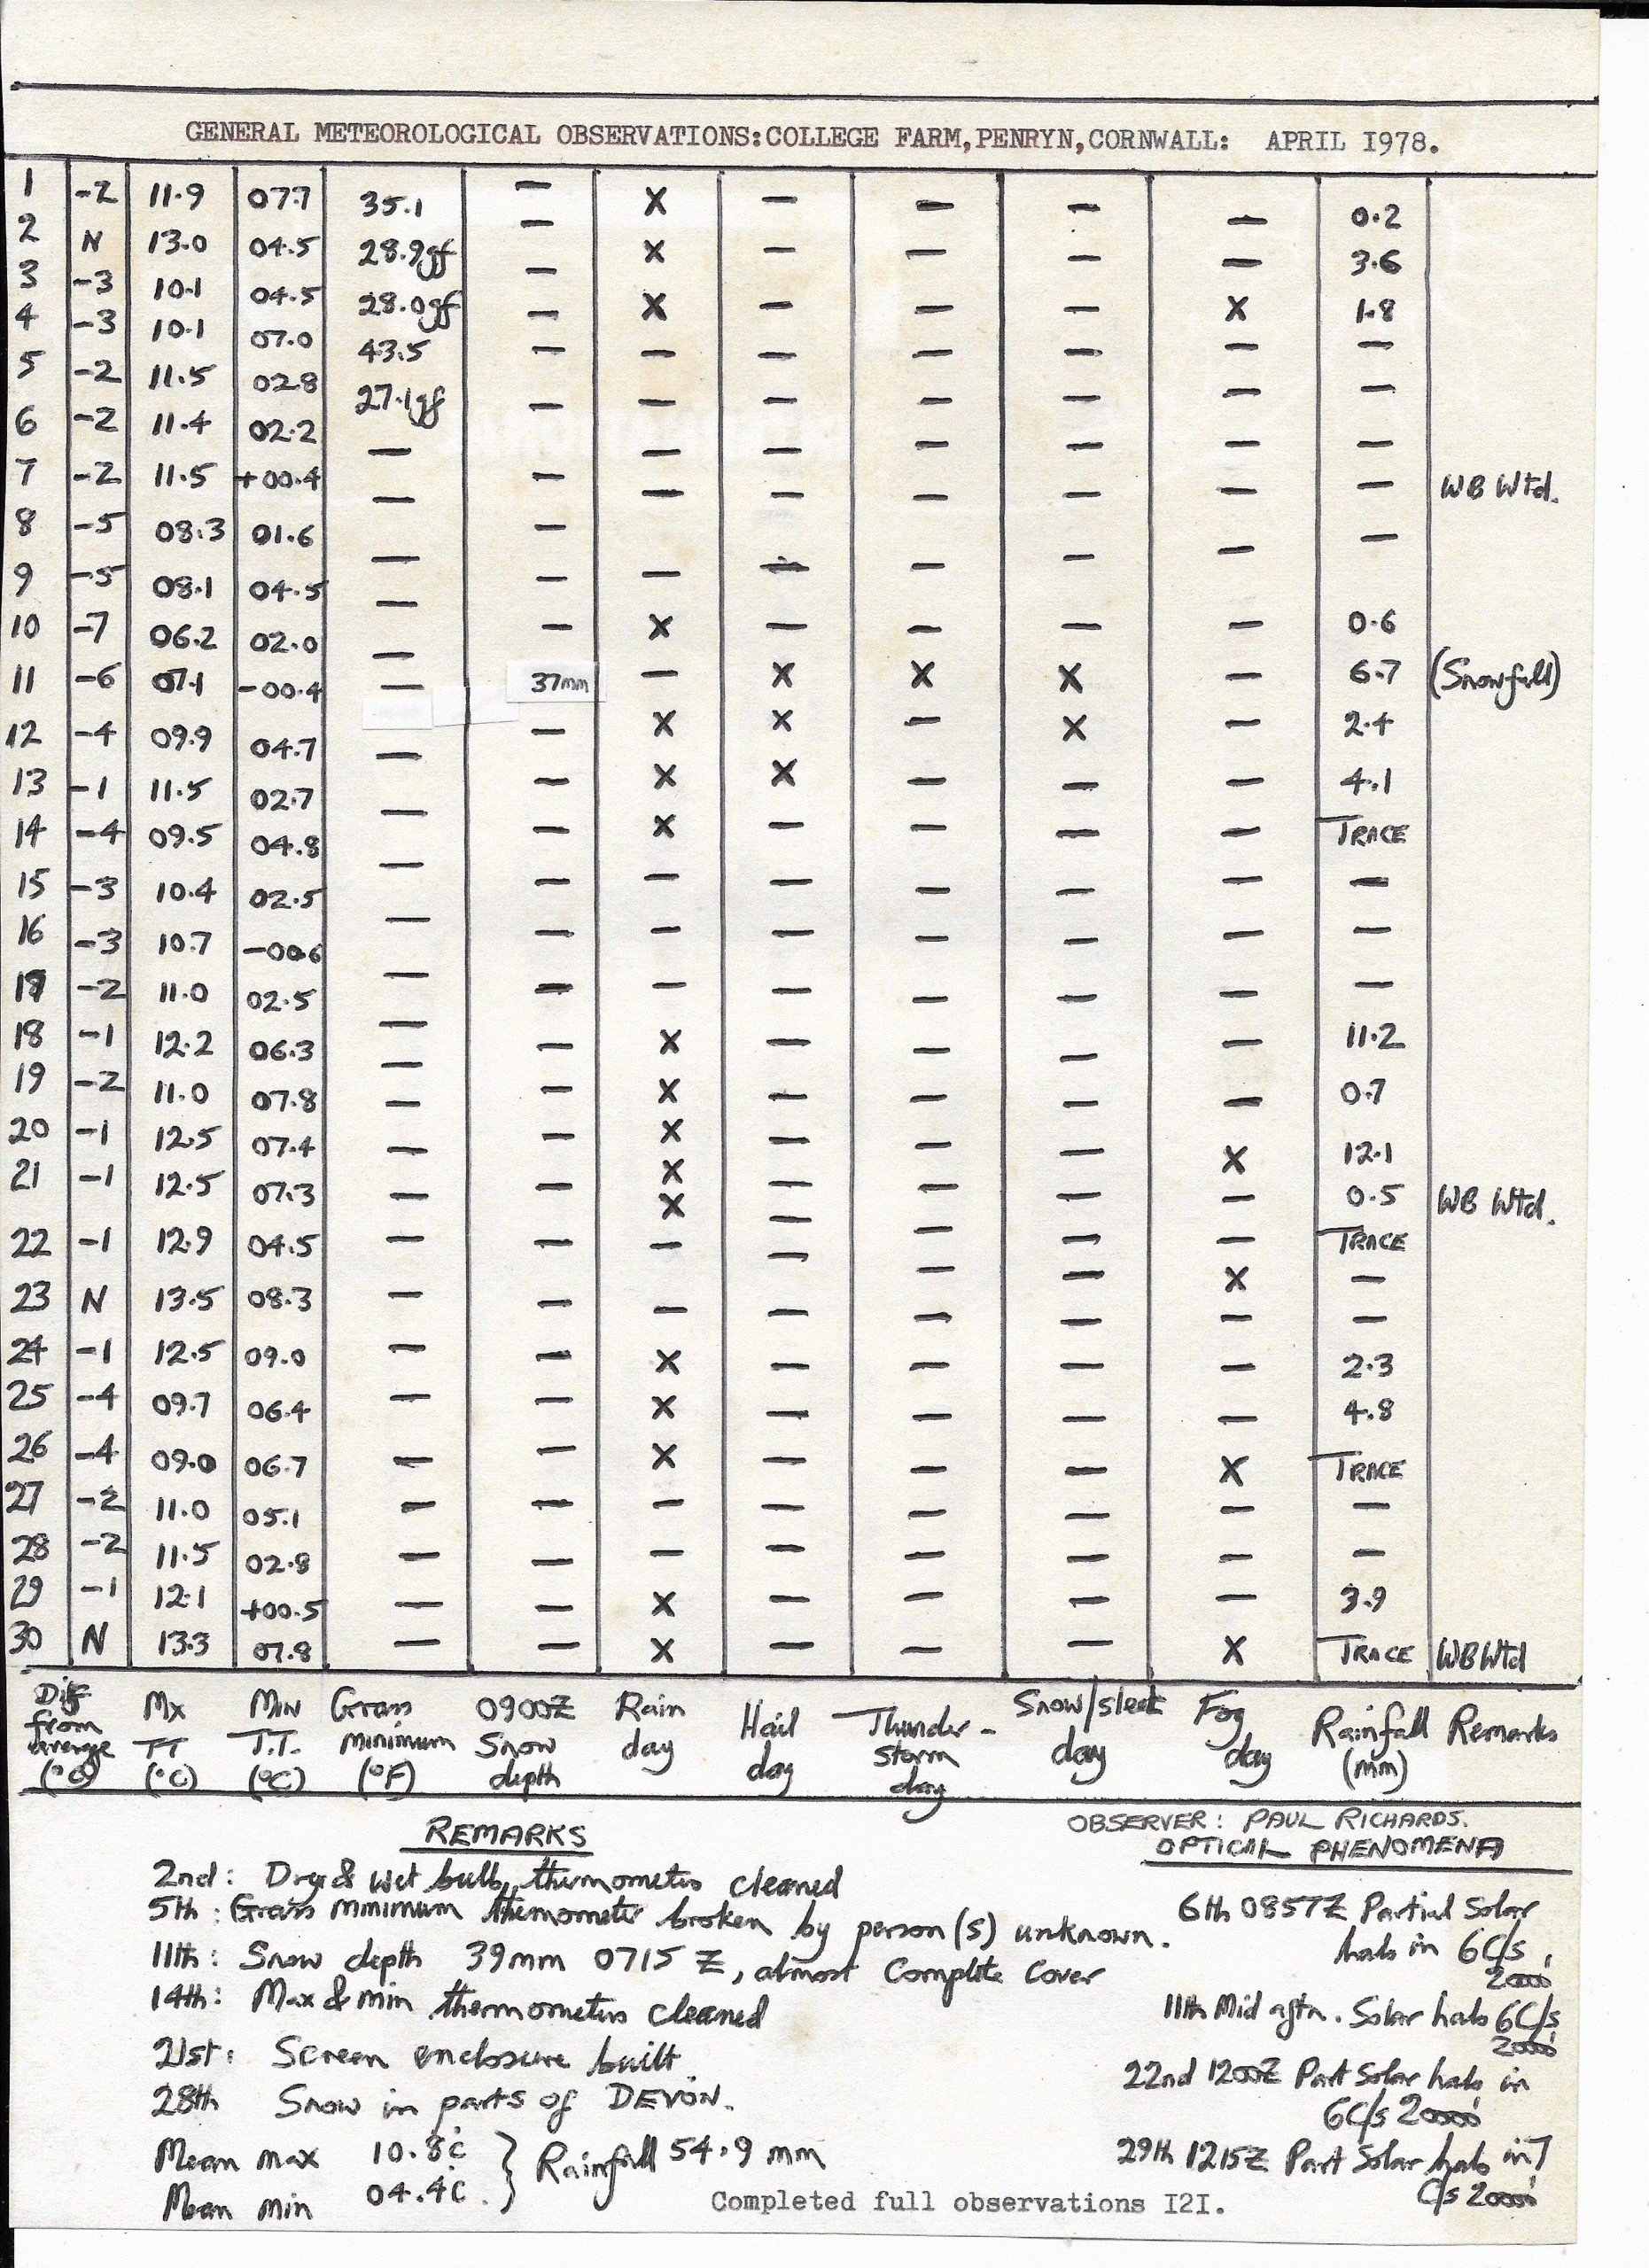 GENERAL METEOROLOGICAL OBSERVATIONS:COLLEGE FARM,PENRYN,CORNWALL: APRIL I978.
1 -2 11.9 07.7 35.1 — X — — — — 0.2
2 N 13.0 04.5 28.9gf — X — — — — 3.6
3 -3 10.1 04.5 28.0gf — X — — — X 1.8
4 -3 10.1 07.0 43.5 — — — — — — —
5 -2 11.5 02.8 27.1gf — — — — — — —
6 -2 11.4 02.2 — — — — — — — —
7 -2 11.5 +00.4 — — — — — — — — WB Wtd.
8 -5 08.3 01.6 — — — — — — — —
9 -5 08.1 04.5 — — — — — — — —
10 -7 06.2 02.0 — — X — — — — 0.6
11 -6 07.1 -00.4 — 37mm — X X X — 6.7 (Snowfall)
12 -4 09.9 04.7 — — X X — X — 2.4
13 -1 11.5 02.7 — — X X — — — 4.1
14 -4 09.5 04.8 — — X — — — — TRACE
15 -3 10.4 02.5 — — — — — — — —
16 -3 10.7 -00.6 — — — — — — — —
17 -2 11.0 02.5 — — — — — — — —
18 -1 12.2 06.3 — — X — — — — 11.2
19 -2 11.0 07.8 — — X — — — — 0.7
20 -1 12.5 07.4 — — X — — — X 12.1
21 -1 12.5 07.3 — — X — — — — 0.5 WB Wtd.
22 -1 12.9 04.5 — — X — — — — TRACE
23 N 13.5 08.3 — — — — — — X —
24 -1 12.5 09.0 — — X — — — — 2.3
25 -4 09.7 06.4 — — X — — — — 4.8
26 -4 09.0 06.7 — — X — — — X TRACE
27 -2 11.0 05.1 — — — — — — — —
28 -2 11.5 02.8 — — — — — — — —
29 -1 12.1 +00.5 — — X — — — — 3.9
30 N 13.3 07.8 — — X — — — X TRACE WB Wtd
Dif from average (°C) Mx TT (°C) MIN T.T. (°C) Grass minimum (°F) 0900Z Snow depth Rain day Hail day Thunder-storm day Snow/sleet day Fog day Rainfall (mm) Remarks
OBSERVER: PAUL RICHARDS.
REMARKS
2nd: Dry & wet bulb thermometers cleaned
5th: Grass minimum thermometer broken by person(s) unknown.
11th: Snow depth 39mm 0715 Z, almost complete cover
14th: Max & min thermometers cleaned
21st: Screen enclosure built.
28th Snow in parts of DEVON.
Mean max 10.8c
Mean min 04.4c.
} Rainfall 54.9 mm
OPTICAL PHENOMENA
6th 0857Z Partial Solar
halo in 6C/s,
20000'
11th Mid aftn. Solar halo 6C/s
20000'
22nd 1200Z Part Solar halo in
6C/s 20000'
29th 1215Z Part Solar halo in 7
C/s 20000'
Completed full observations I2I.